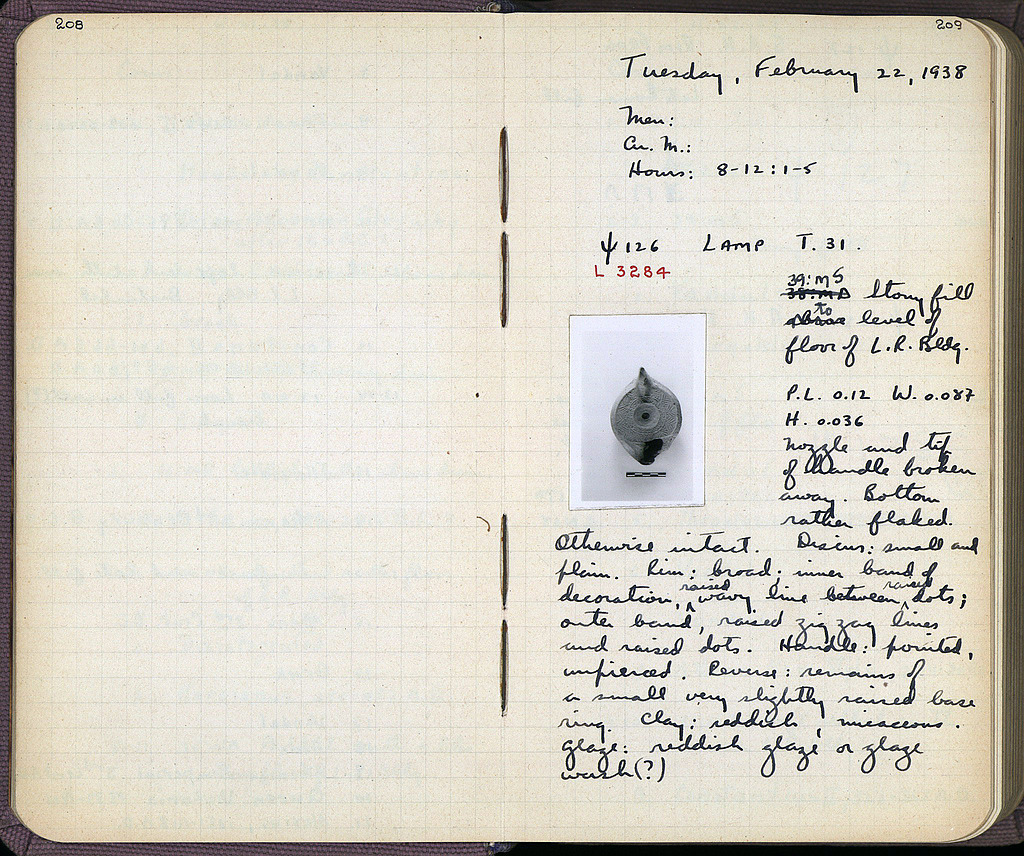 208
209
Tuesday, February 22, 1938
Men:
Hours: 8-12:1-5
ψ126 LAMP T. 31.
L 3284
39:MS
Stony fill
to
level of
floor of L.R. Bldg.
P.L. 0.12 W. 0.087
H. 0.036
Nozzle and tip
of handle broken
away. Bottom
rather flaked.
Otherwise intact. Discus: small and
plain. Rim: broad; inner band of
decoration, raised wavy line between raised dots;
outer band, raised zig zag lines
and raised dots. Handle: pointed,
unpierced. Reverse: remains of
a small very slightly raised base
ring. Clay: reddish, micaceous.
Glaze: reddish glaze or glaze
wash(?)